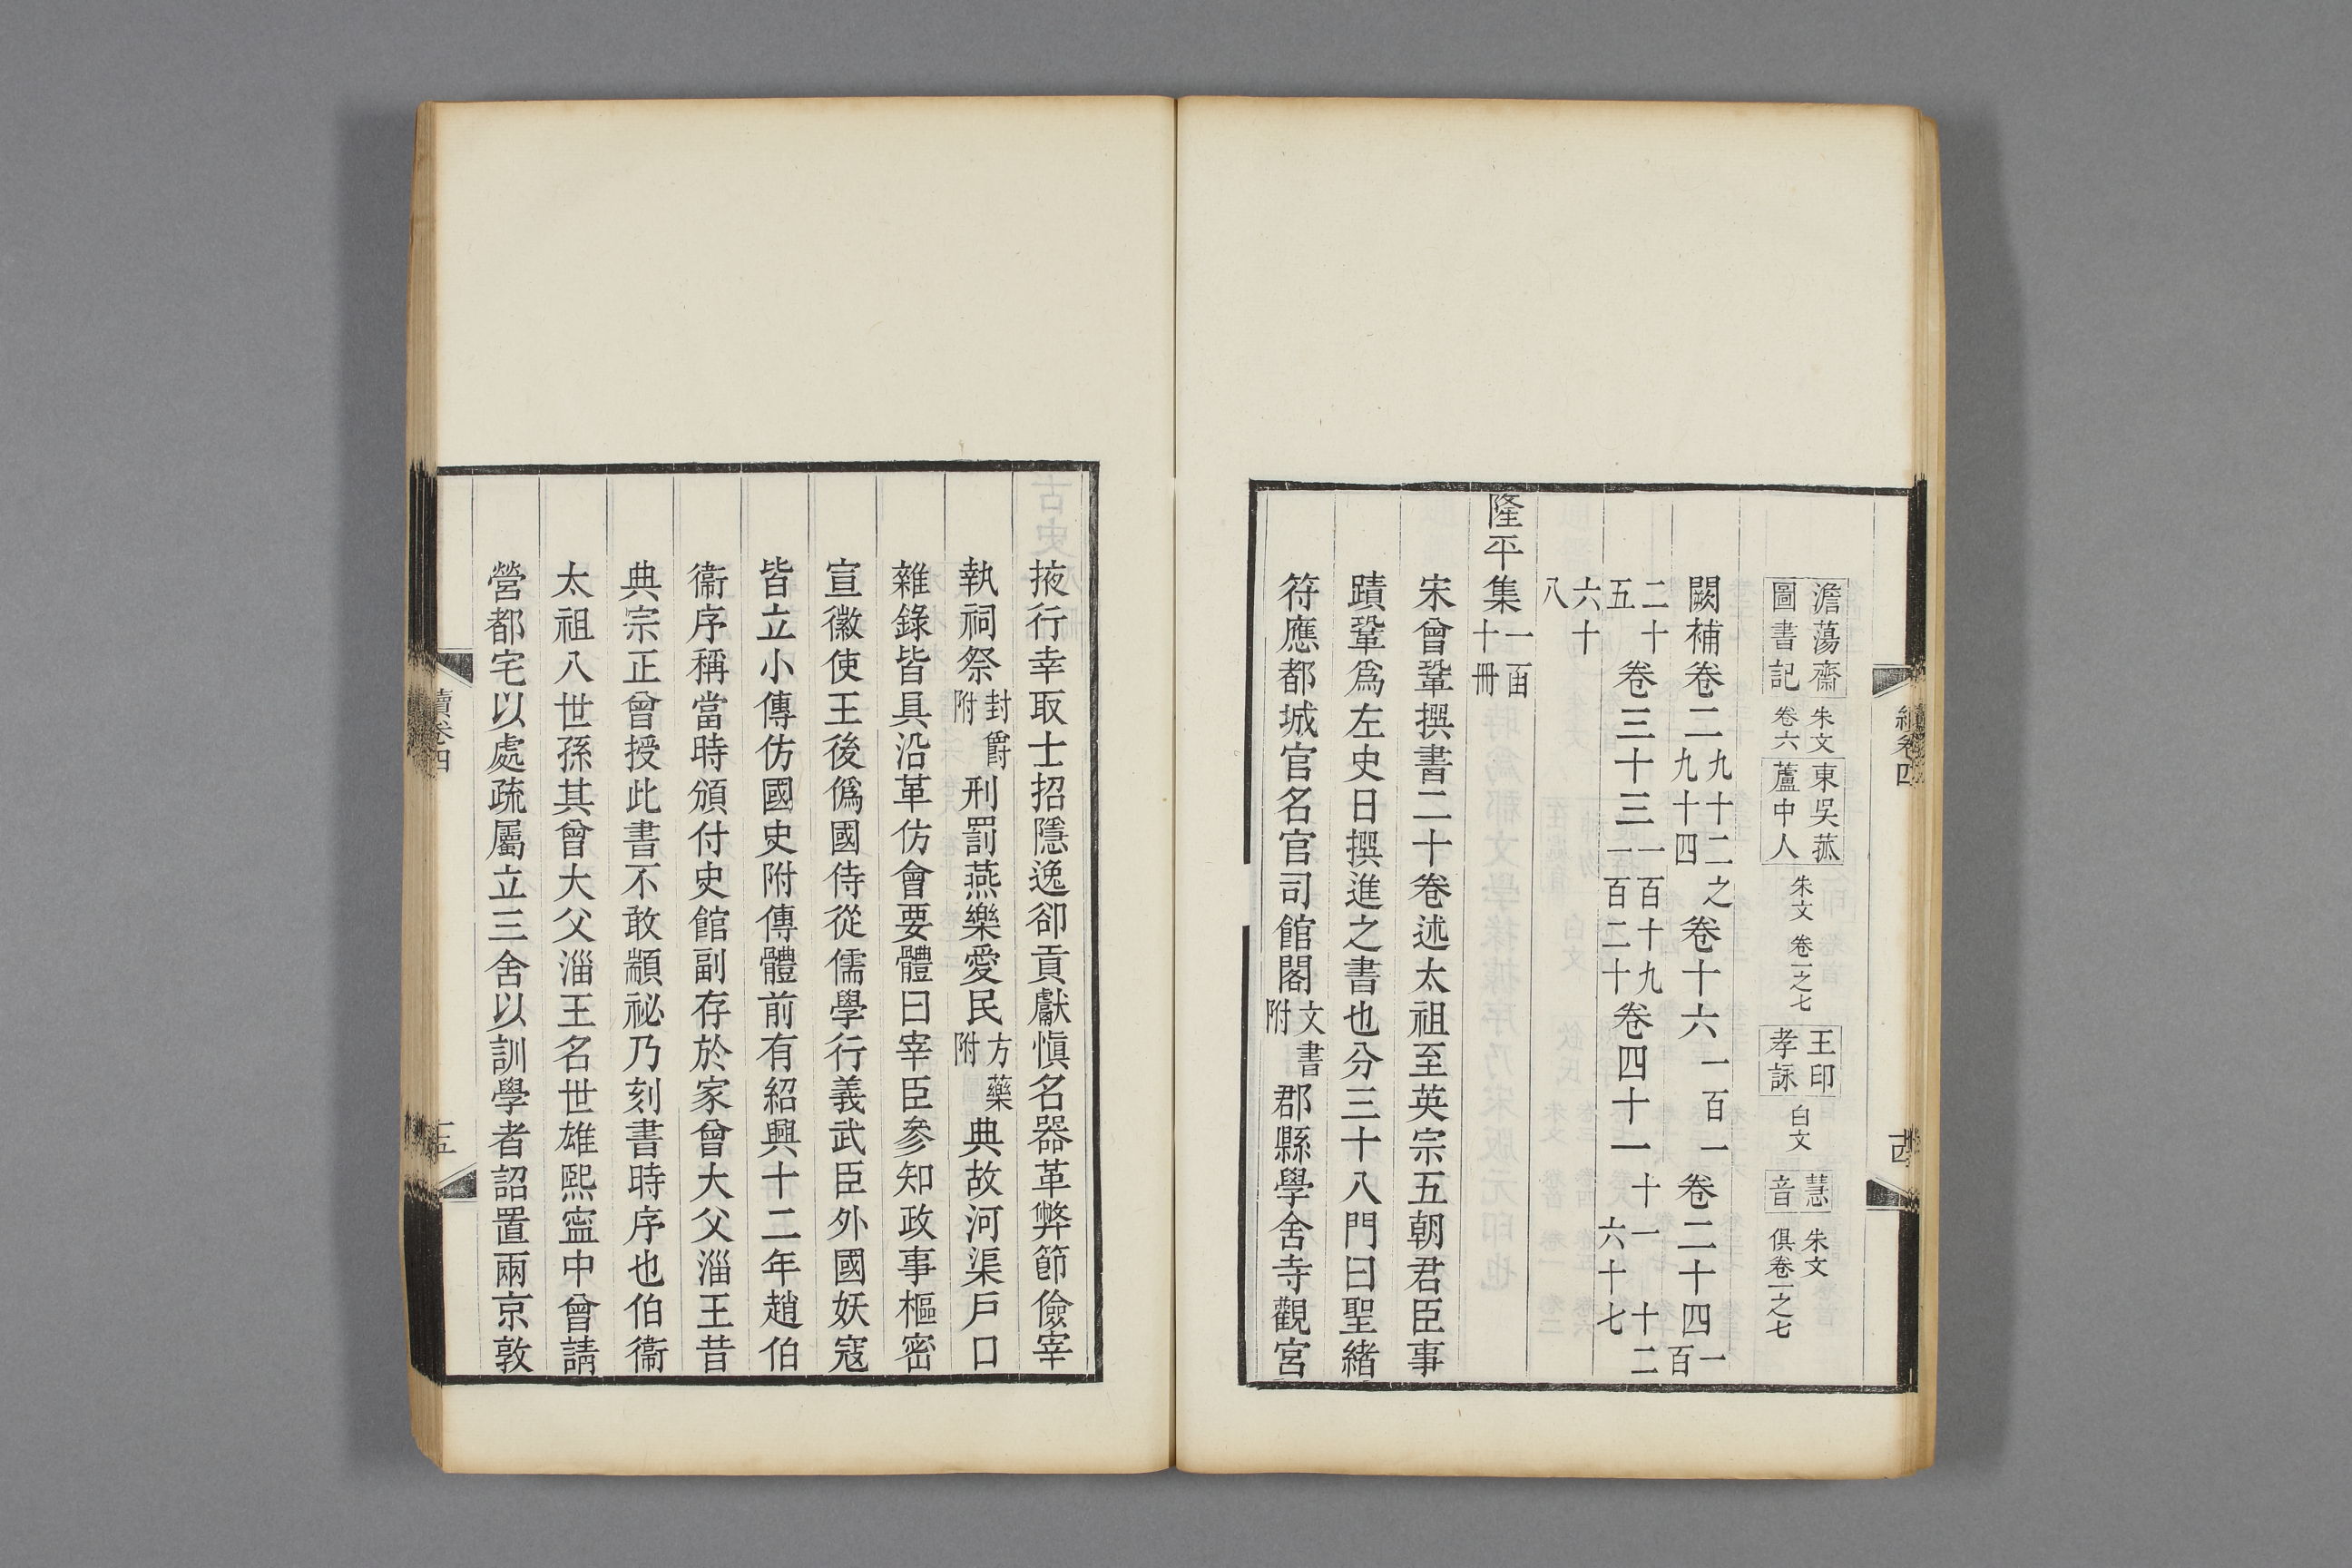 澹蕩齋圖書記朱文卷六東吳菰蘆中人朱文卷一之七王印孝詠白文慧音朱文俱卷一之七
闕補卷二九十二之九十四卷十六一百一卷二十四一百
二十五卷三十三一百十九一百二十卷四十一十一十二六十七
六十八
隆平集一函十冊
宋曾鞏撰書二十卷述太祖至英宗五朝君臣事
蹟鞏爲左史日撰進之書也分三十八門曰聖緒
符應都城官名官司館閣文書附郡縣學舍寺觀宮
續卷四
掖行幸取士招隱逸卻貢獻愼名器革弊節儉宰
執祠祭封爵附刑罰燕樂愛民方藥附典故河渠戶口
雜錄皆具沿革仿會要體曰宰臣參知政事樞密
宣徽使王後僞國侍從儒學行義武臣外國妖寇
皆立小傳仿國史附傳體前有紹興十二年趙伯
衞序稱當時頒付史館副存於家曾大父淄王昔
典宗正曾授此書不敢顓祕乃刻書時序也伯衞
太祖八世孫其曾大父淄王名世雄熙寍中曾請
營都宅以處疏屬立三舍以訓學者詔置兩京敦
續卷四